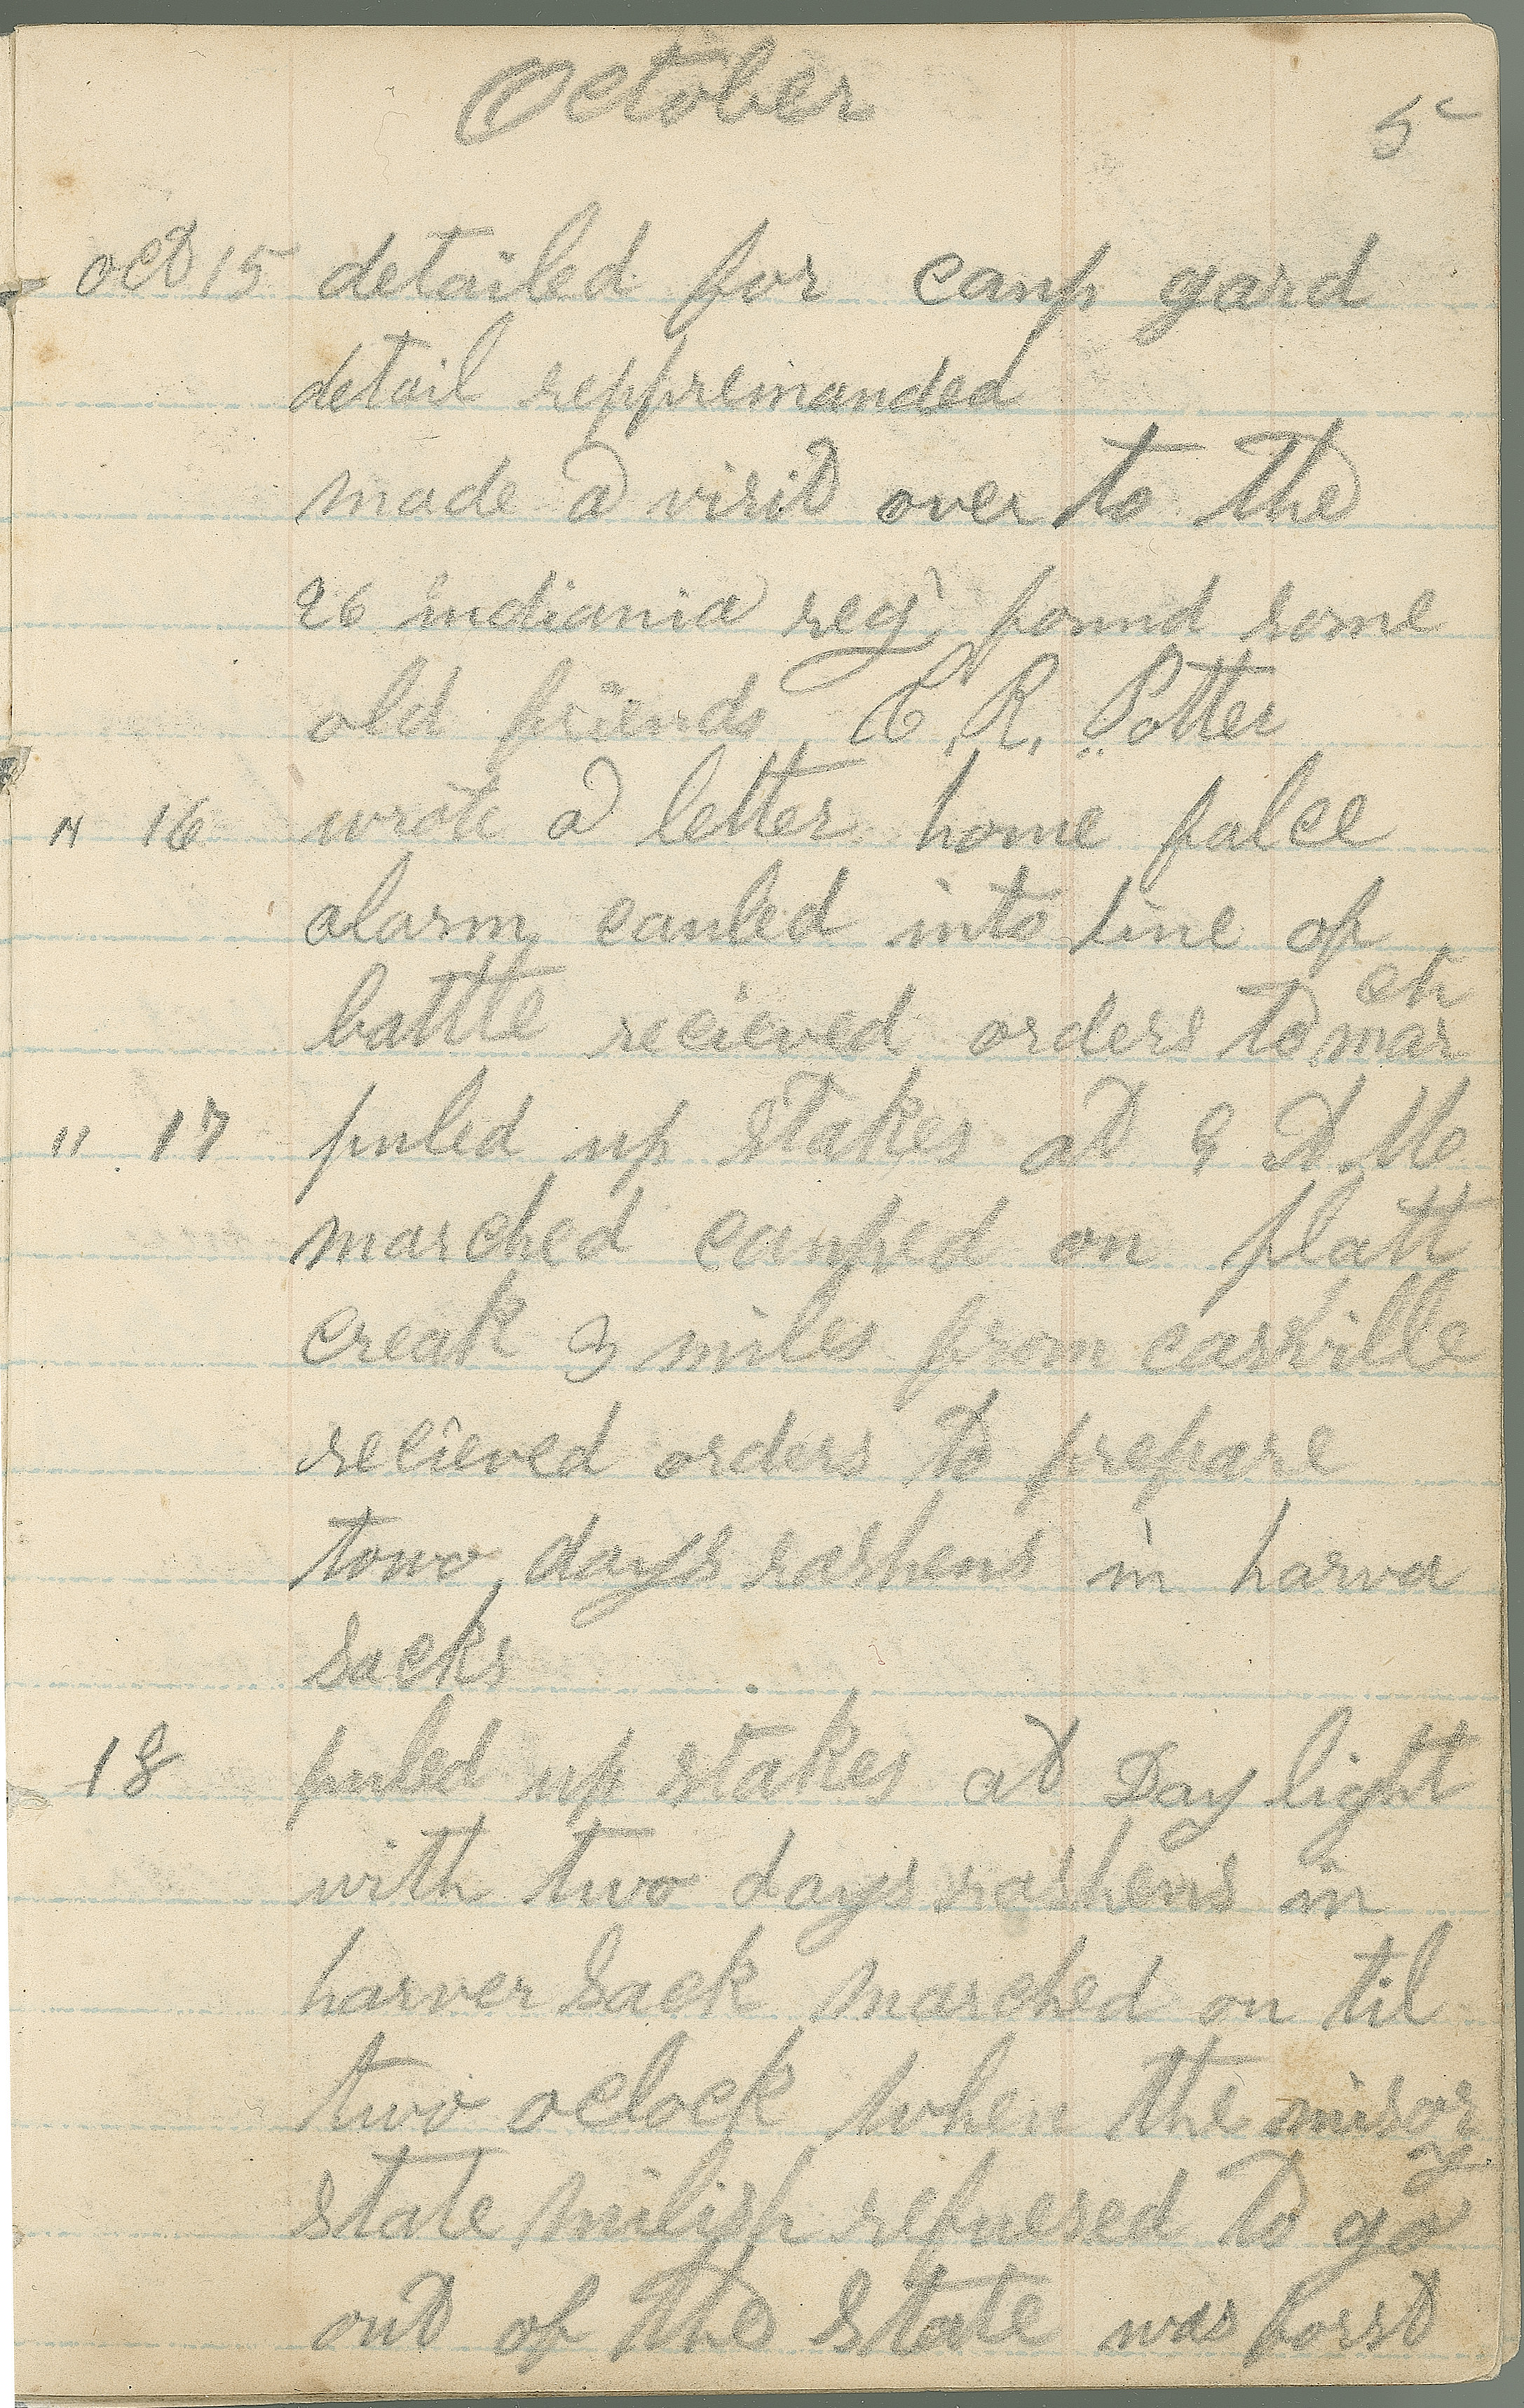 October
5
oct 15 detailed for camp gard
detail reppremanded
made a visit over to the
26 indiania reg found some
old friends C. R. Potter
" 16 wrote a letter home falce
alarm cauled into line of
battle recieved orders to march
" 17 puled up stakes at 8 A. M
marched camped on flatt
creak 3 miles from casville
recieved orders to prepare
towo days rashens in harva
sacks
18 puled up stakes at Day light
with two days rashens in
harver sack marched on til
two oclock when the misory
state milish refuesed to go
out of the state was forst